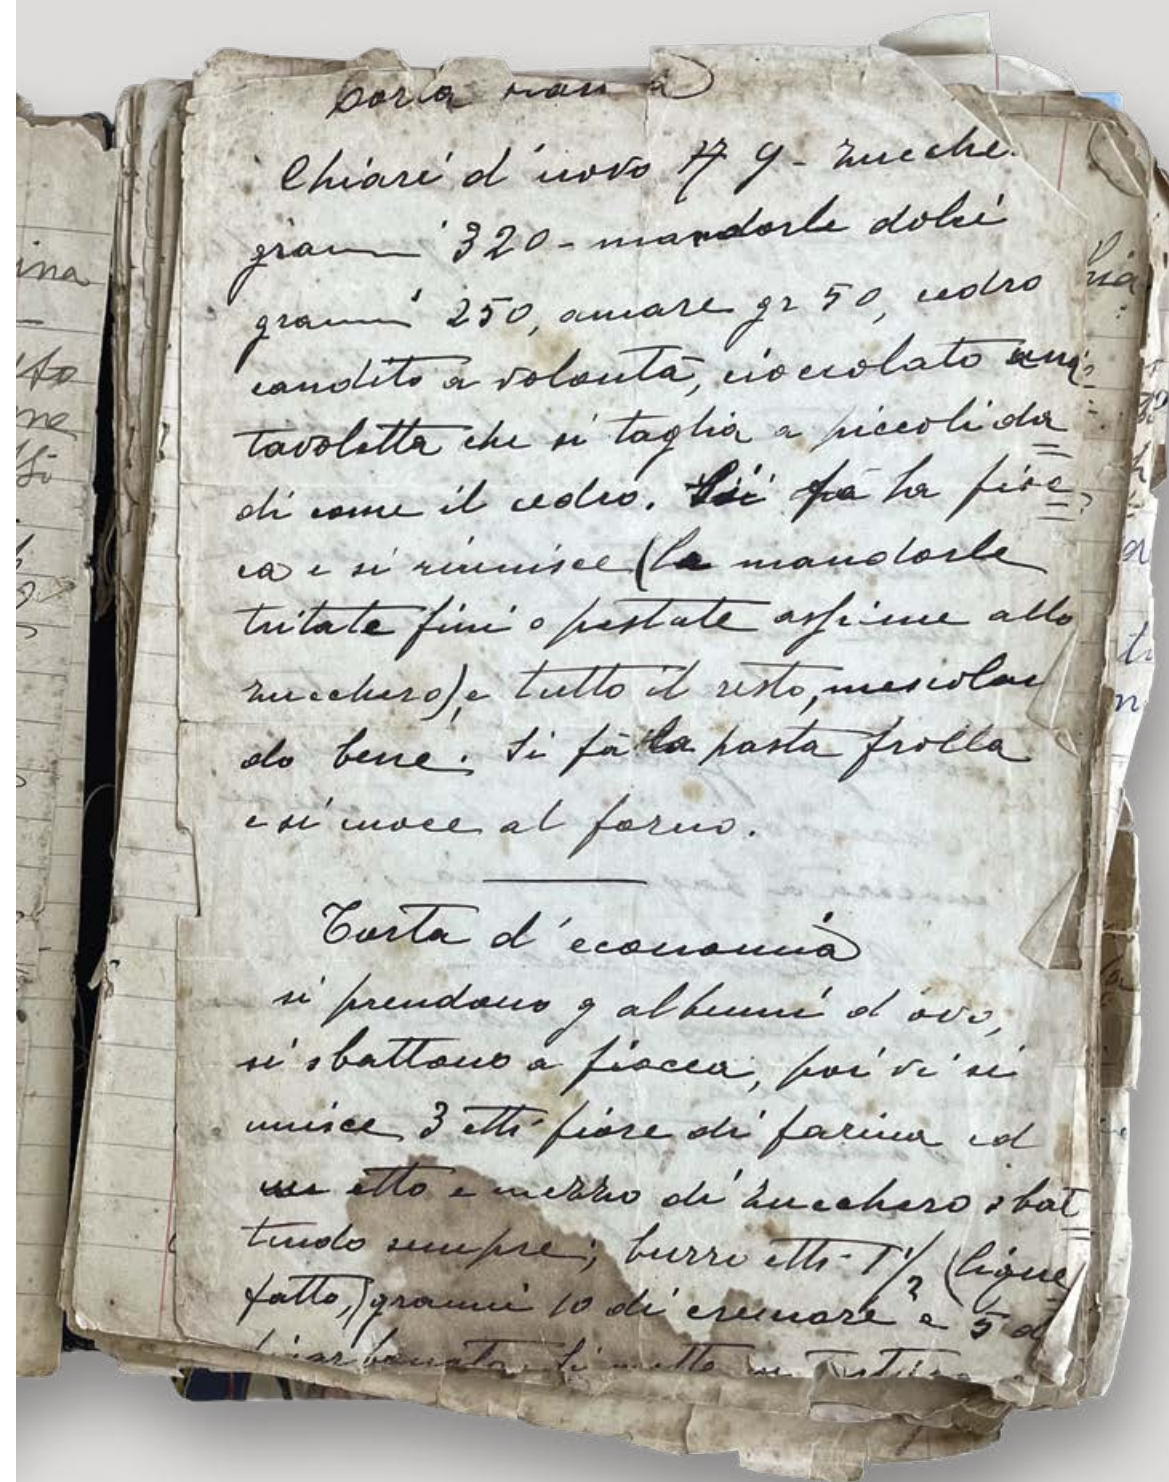 Torta
Chiari d'uovo 9 - zucche.
grammi 320 - mandorle dolci
grammi 250, amare gr 50, cedro
candito a volontà, cioccolato una
tavoletta che si taglia a piccoli da=
di come il cedro. Si fà ha fioc=
ca e si riunisce (le mandorle
tritate fini o pestate assieme allo
zucchero), e tutto il resto, mescolan
do bene. Si fà la pasta frolla
e si cuoce al forno.
Torta d'economia
si prendono 9 albumi d'ovo,
si sbattono a fiocca, poi vi si
unisce 3 etti fiore di farina ed
un etto e mezzo di zucchero sbat=
tendo sempre; burro etti 1 1/2 (lique
fatto,) grammi 10 di cremore e 5 d
bicarbonato. Si mette in
ina